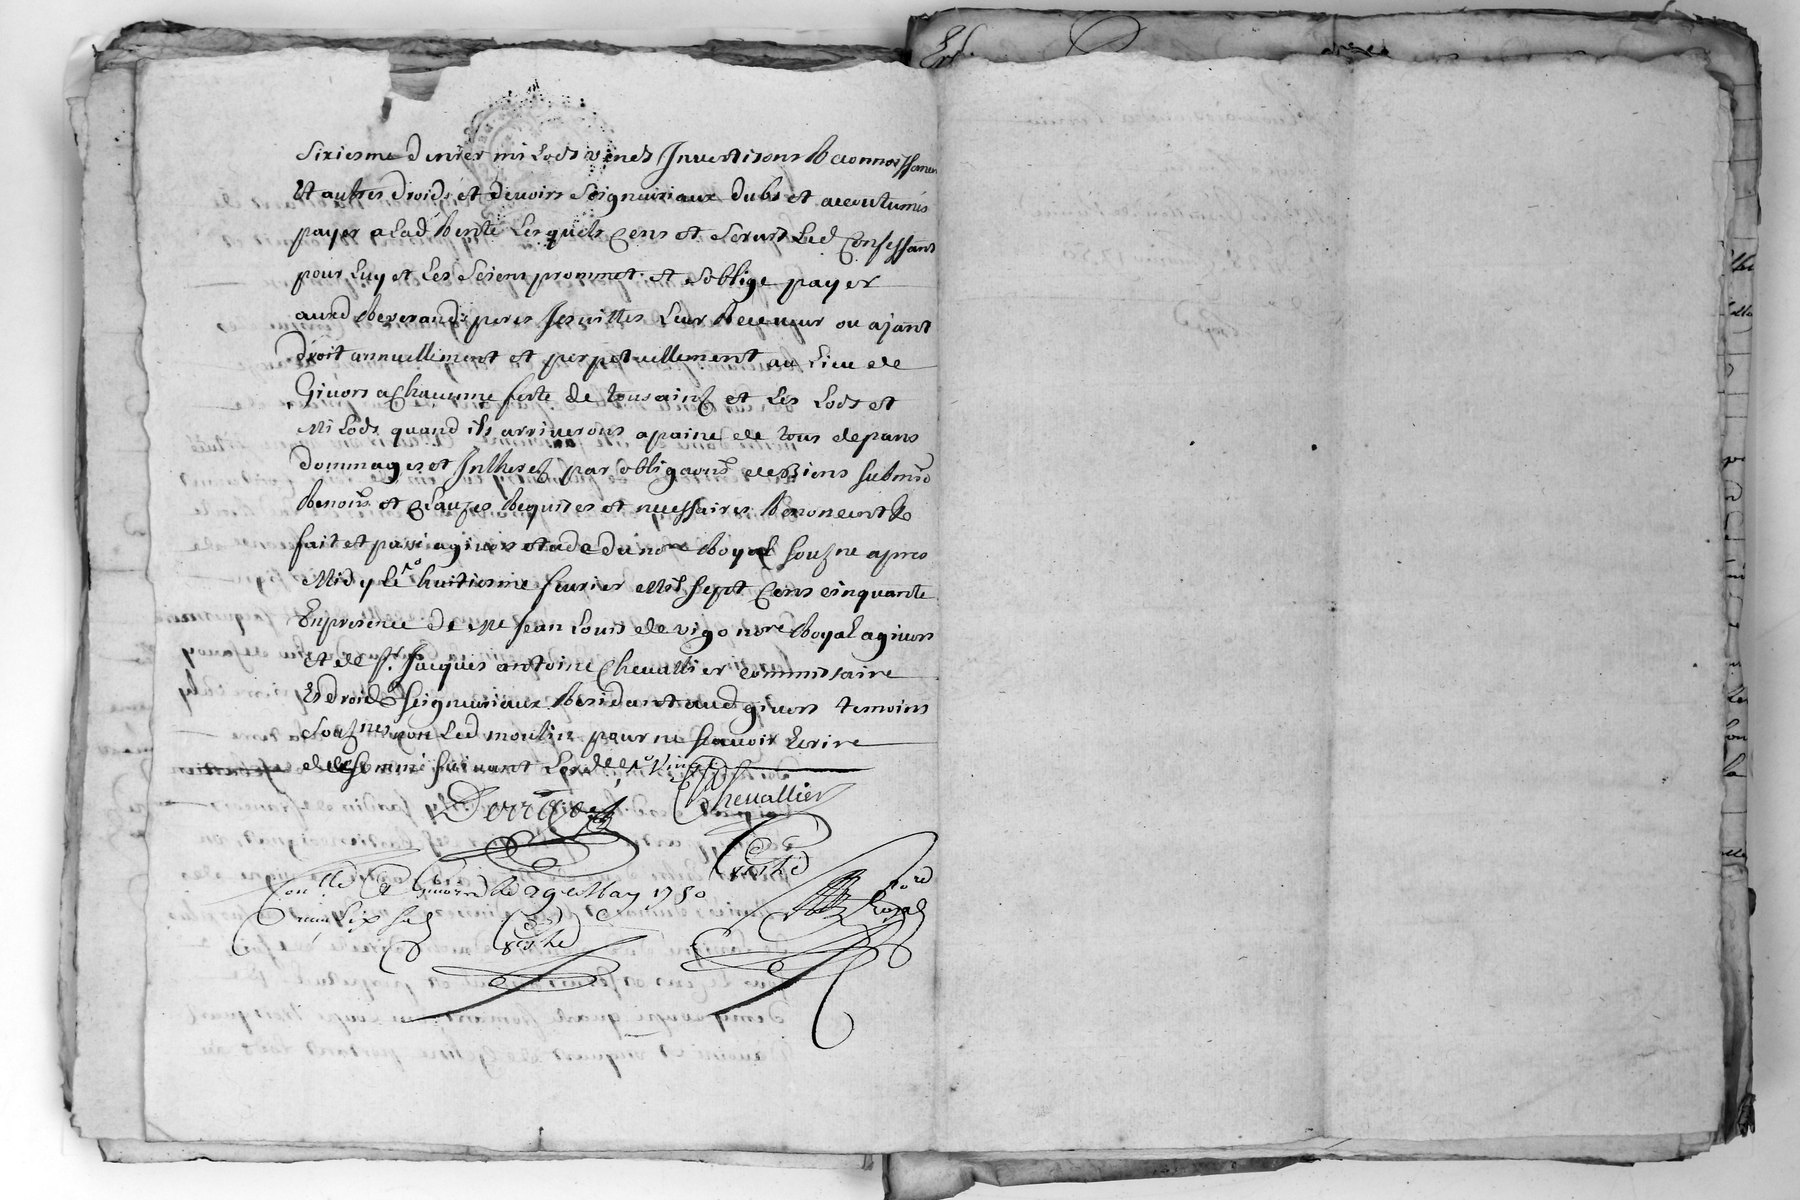 Sixiesme denier mi Lods vends Investisons Reconnoissances
Et autres droids et devoirs Seigneuriaux dubs et accoutumés
payer a lad Rente Lesquels Cens et Servis Led Confessant
pour Luy et Les Seiens prommet et s'oblige payer
auxd Reverands peres Jesuittes Leur Receveur ou ajant
droit annuellement et perpetuellement au Lieu de
Givors a Chacunne feste de tousainz et Les Lods et
Mi Lods quand ils arriverons a paine de tous depans
dommages et Intherez par obligaons de Biens submis
Renons et Clauzes Requises et necessaires Renonceant &
fait et passé a givors etude du nore Royal souzne apres
Midy le huitiesme fevrier Mil sept Cens cinquante
En presence de Me Jean Louis de vigo nore Royal a givors
et de sr. Jacques antoine Chevallier commissaire
Es droids Seigneuriaux Residant aud givors temoins
Souznes non Led moulin pour ne scavoir Ecrire
de ce sommé suivant Lord
Chevallier
Con.lle a Givors le 29e May 1750
nore
Royal